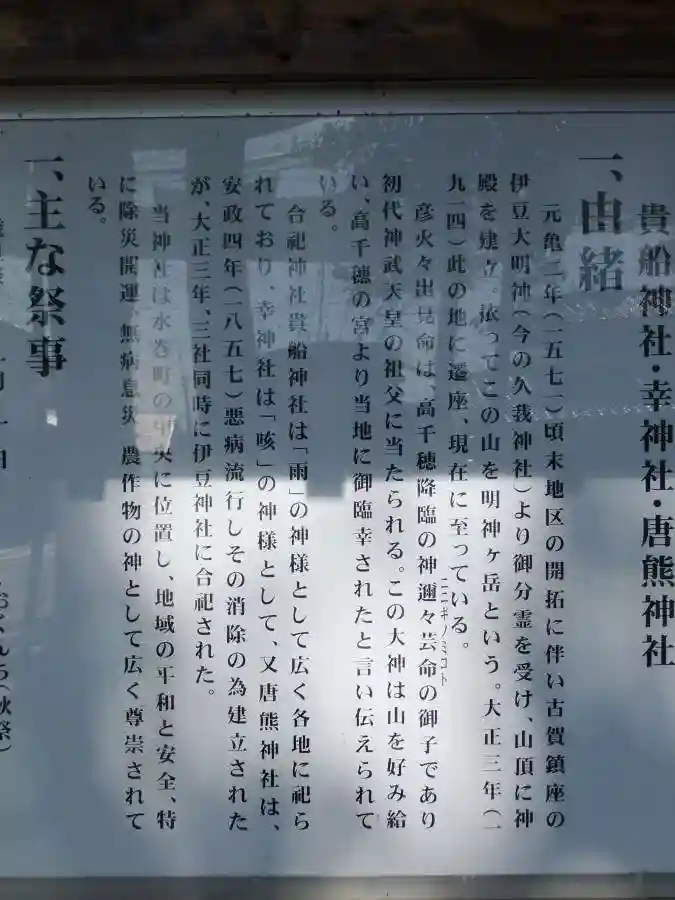 貴船神社・幸神社・唐熊神社
一、由緒
元亀二年(一五七一)頃末地区の開拓に伴い古賀鎮座の
伊豆大明神(今の久我神社)より御分霊を受け、山頂に神
殿を建立。依ってこの山を明神ヶ岳という。大正三年(一
九一四)此の地に遷座、現在に至っている。
彦火々出見命は、高千穂降臨の神邇々芸命の御子であり
ニニギノミコト
初代神武天皇の祖父に当たられる。この大神は山を好み給
い、高千穂の宮より当地に御臨幸されたと言い伝えられて
いる。
合祀神社貴船神社は「雨」の神様として広く各地に祀ら
れており、幸神社は「咳」の神様として、又唐熊神社は、
安政四年(一八五七)悪病流行しその消除の為建立された
が、大正三年、三社同時に伊豆神社に合祀された。
当神社は水巻町の中央に位置し、地域の平和と安全、特
に除災開運、無病息災、農作物の神として広く尊崇されて
いる。
一、主な祭事
おくんち(秋祭)